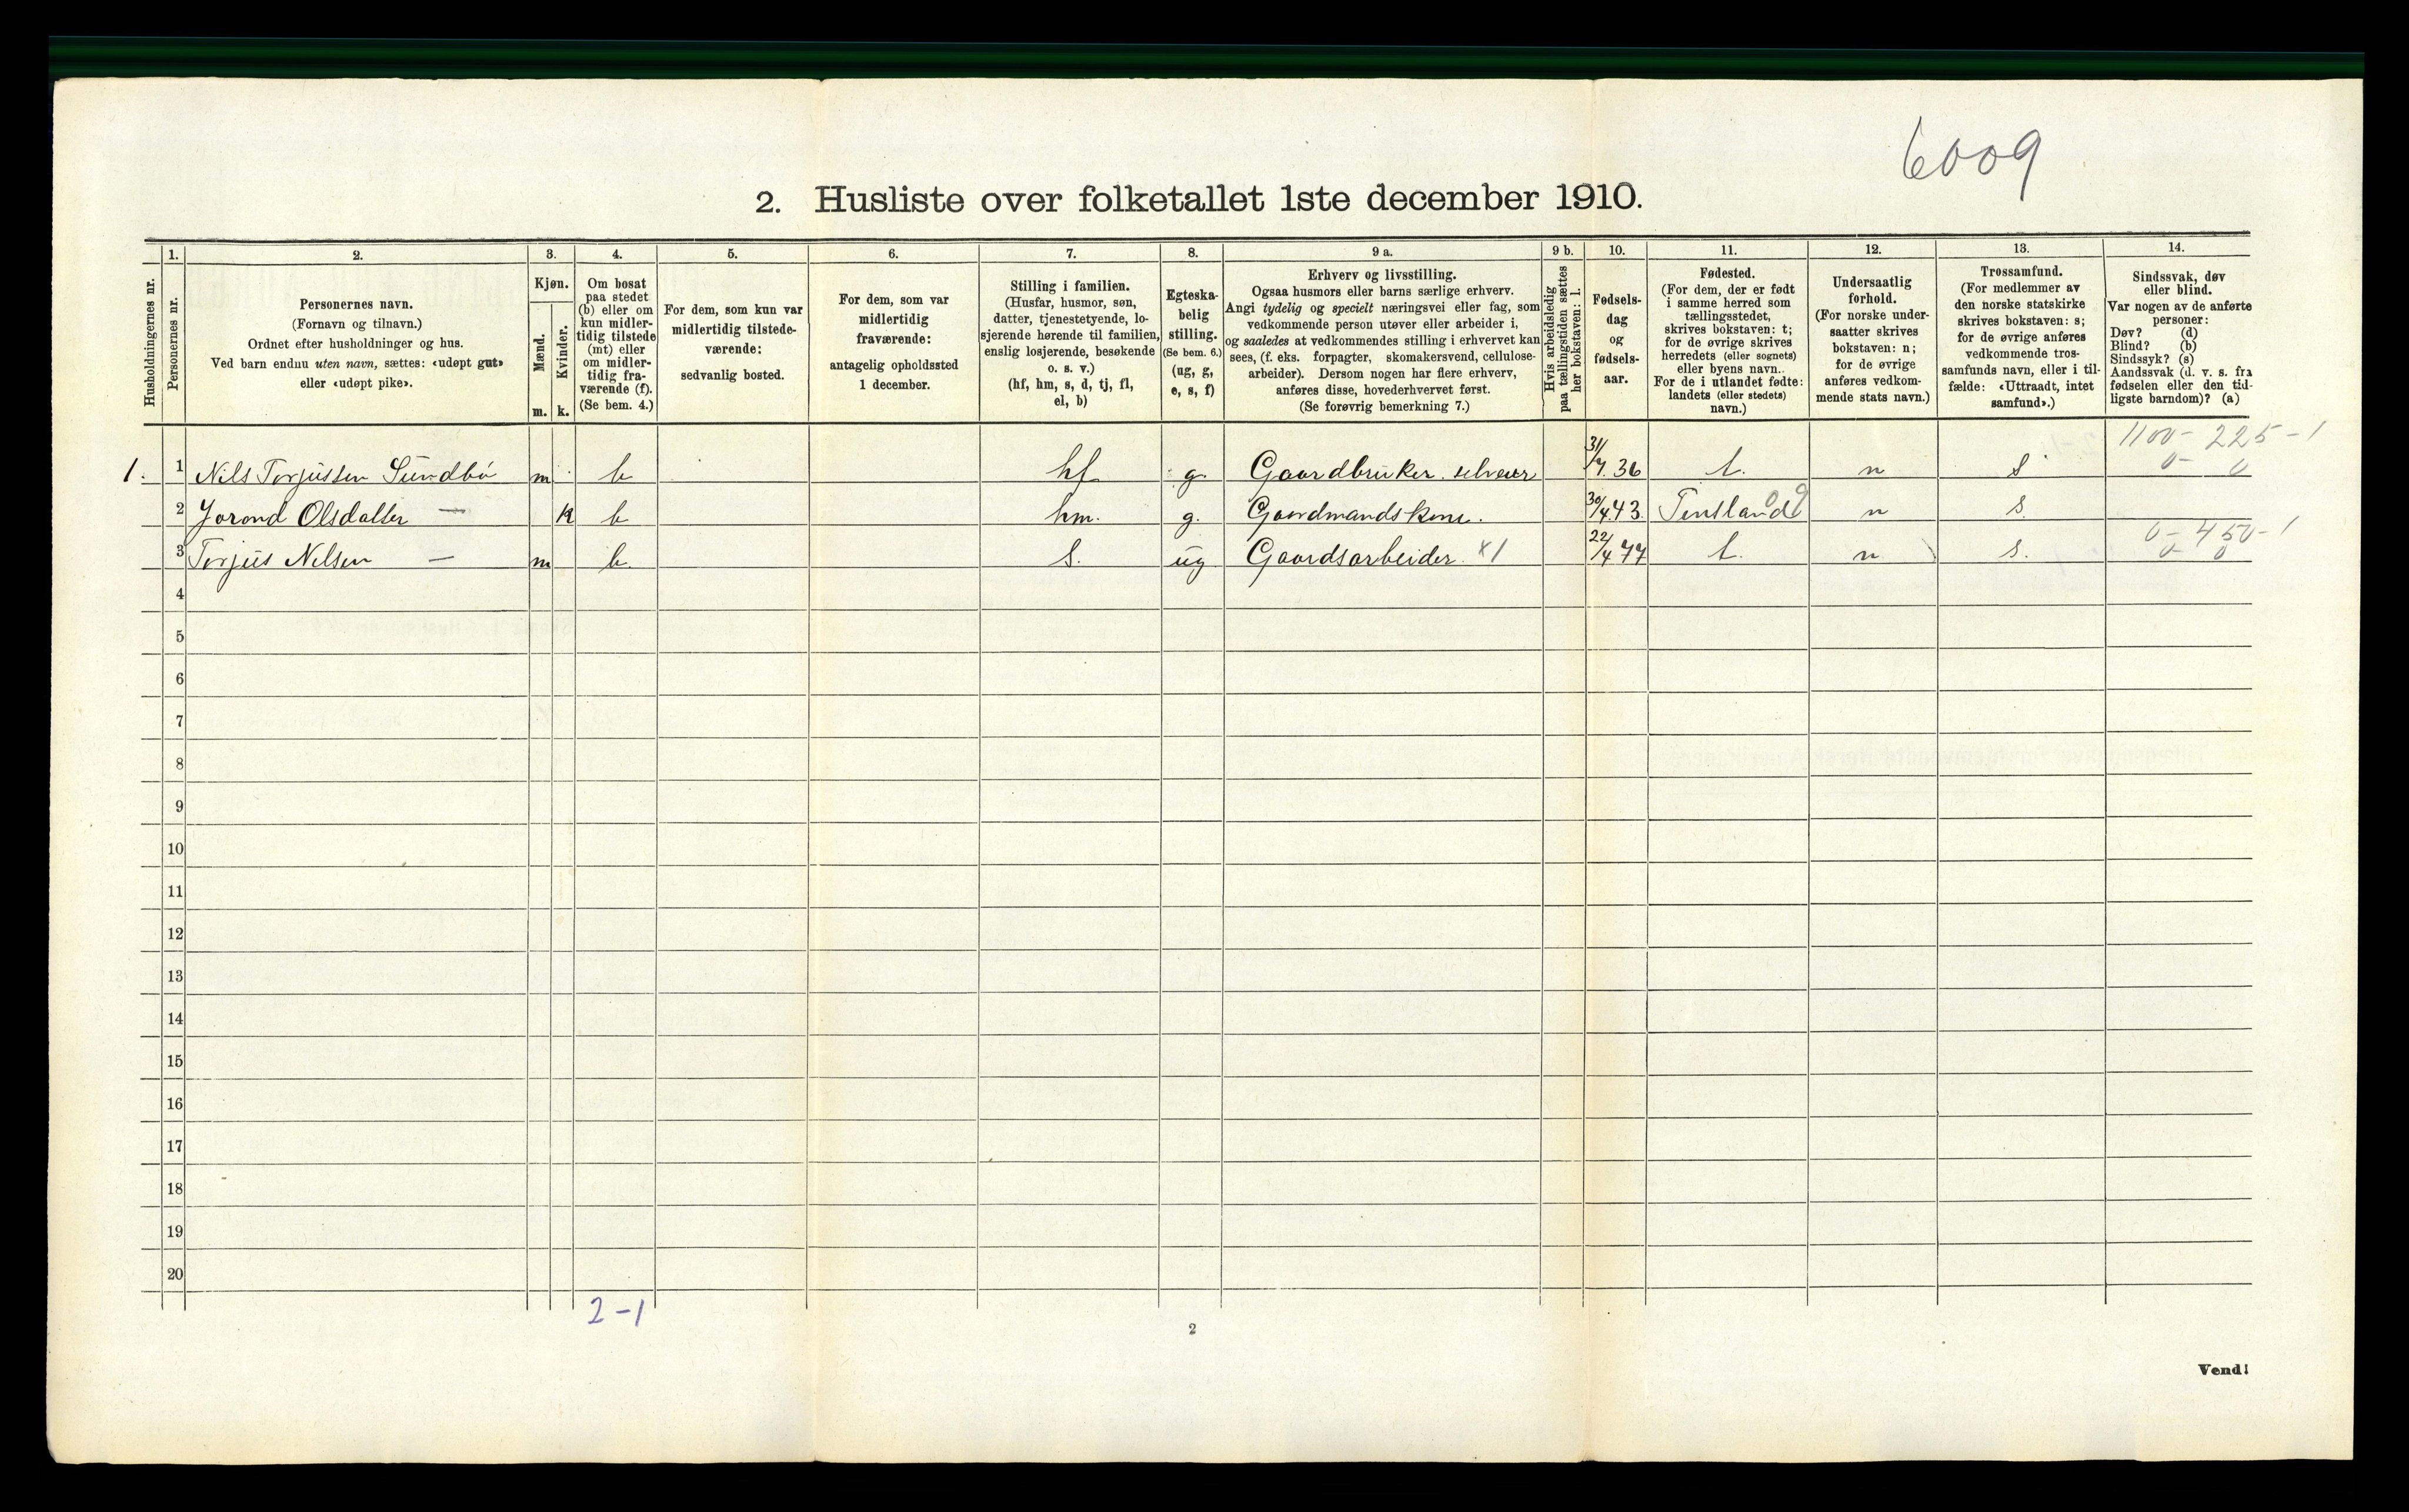 6009
2. Husliste over folketallet 1ste december 1910.
Husholdningernes nr.
1.
Personernes nr.
2.
Personernes navn.
(Fornavn og tilnavn.)
Ordnet efter husholdninger og hus.
Ved barn endnu uten navn, sættes: «udøpt gut»
eller «udøpt pike».
3.
Kjøn.
Mænd.
Kvinder.
m. k.
4.
Om bosat
paa stedet
(b) eller om
kun midler-
tidig tilstede
(mt) eller
om midler-
tidig fra-
værende (f).
(Se bem. 4.)
5.
For dem, som kun var
midlertidig tilstede-
værende:
sedvanlig bosted.
6.
For dem, som var
midlertidig
fraværende:
antagelig opholdssted
1 december.
7.
Stilling i familien.
(Husfar, husmor, søn,
datter, tjenestetyende, lo-
sjerende hørende til familien,
enslig losjerende, besøkende
o. s. v.)
(hf, hm, s, d, tj, fl,
el, b)
8.
Egteska-
belig
stilling.
(Se bem. 6.)
(ug, g,
e, s, f)
9 a.
Erhverv og livsstilling.
Ogsaa husmors eller barns særlige erhverv.
Angi tydelig og specielt næringsvei eller fag, som
vedkommende person utøver eller arbeider i,
og saaledes at vedkommendes stilling i erhvervet kan
sees, (f. eks. forpagter, skomakersvend, cellulose-
arbeider). Dersom nogen har flere erhverv,
anføres disse, hovederhvervet først.
(Se forøvrig bemerkning 7.)
9 b.
Hvis arbeidsledig
paa tællingstiden sættes
her bokstaven: l.
10.
Fødsels-
dag
og
fødsels-
aar.
11.
Fødested.
(For dem, der er født
i samme herred som
tællingsstedet,
skrives bokstaven: t;
for de øvrige skrives
herredets (eller sognets)
eller byens navn.
For de i utlandet fødte:
landets (eller stedets)
navn.)
12.
Undersaatlig
forhold.
(For norske under-
saatter skrives
bokstaven: n;
for de øvrige
anføres vedkom-
mende stats navn.)
13.
Trossamfund.
(For medlemmer av
den norske statskirke
skrives bokstaven: s;
for de øvrige anføres
vedkommende tros-
samfunds navn, eller i til-
fælde: «Uttraadt, intet
samfund».)
14.
Sindssvak, døv
eller blind.
Var nogen av de anførte
personer:
Døv? (d)
Blind? (b)
Sindssyk? (s)
Aandssvak (d. v. s. fra
fødselen eller den tid-
ligste barndom)? (a)
1100 - 225 - 1
1. 1 Nils Torjussen Sundbö m b hf g. Gaardbruker selveier 31/7. 36 t. n s 0 - 0
2 Jorond Olsdatter — k b hm. g. Gaardmandskone. 30/4 43. n s.
0 - 450 - 1
3 Torjus Nilsen — m b. s. ug Gaardsarbeider. x1 22/4 77 t. n s. 0 - 0
4
5
6
7
8
9
10
11
12
13
14
15
16
17
18
19
20
2-1
2
Vend!